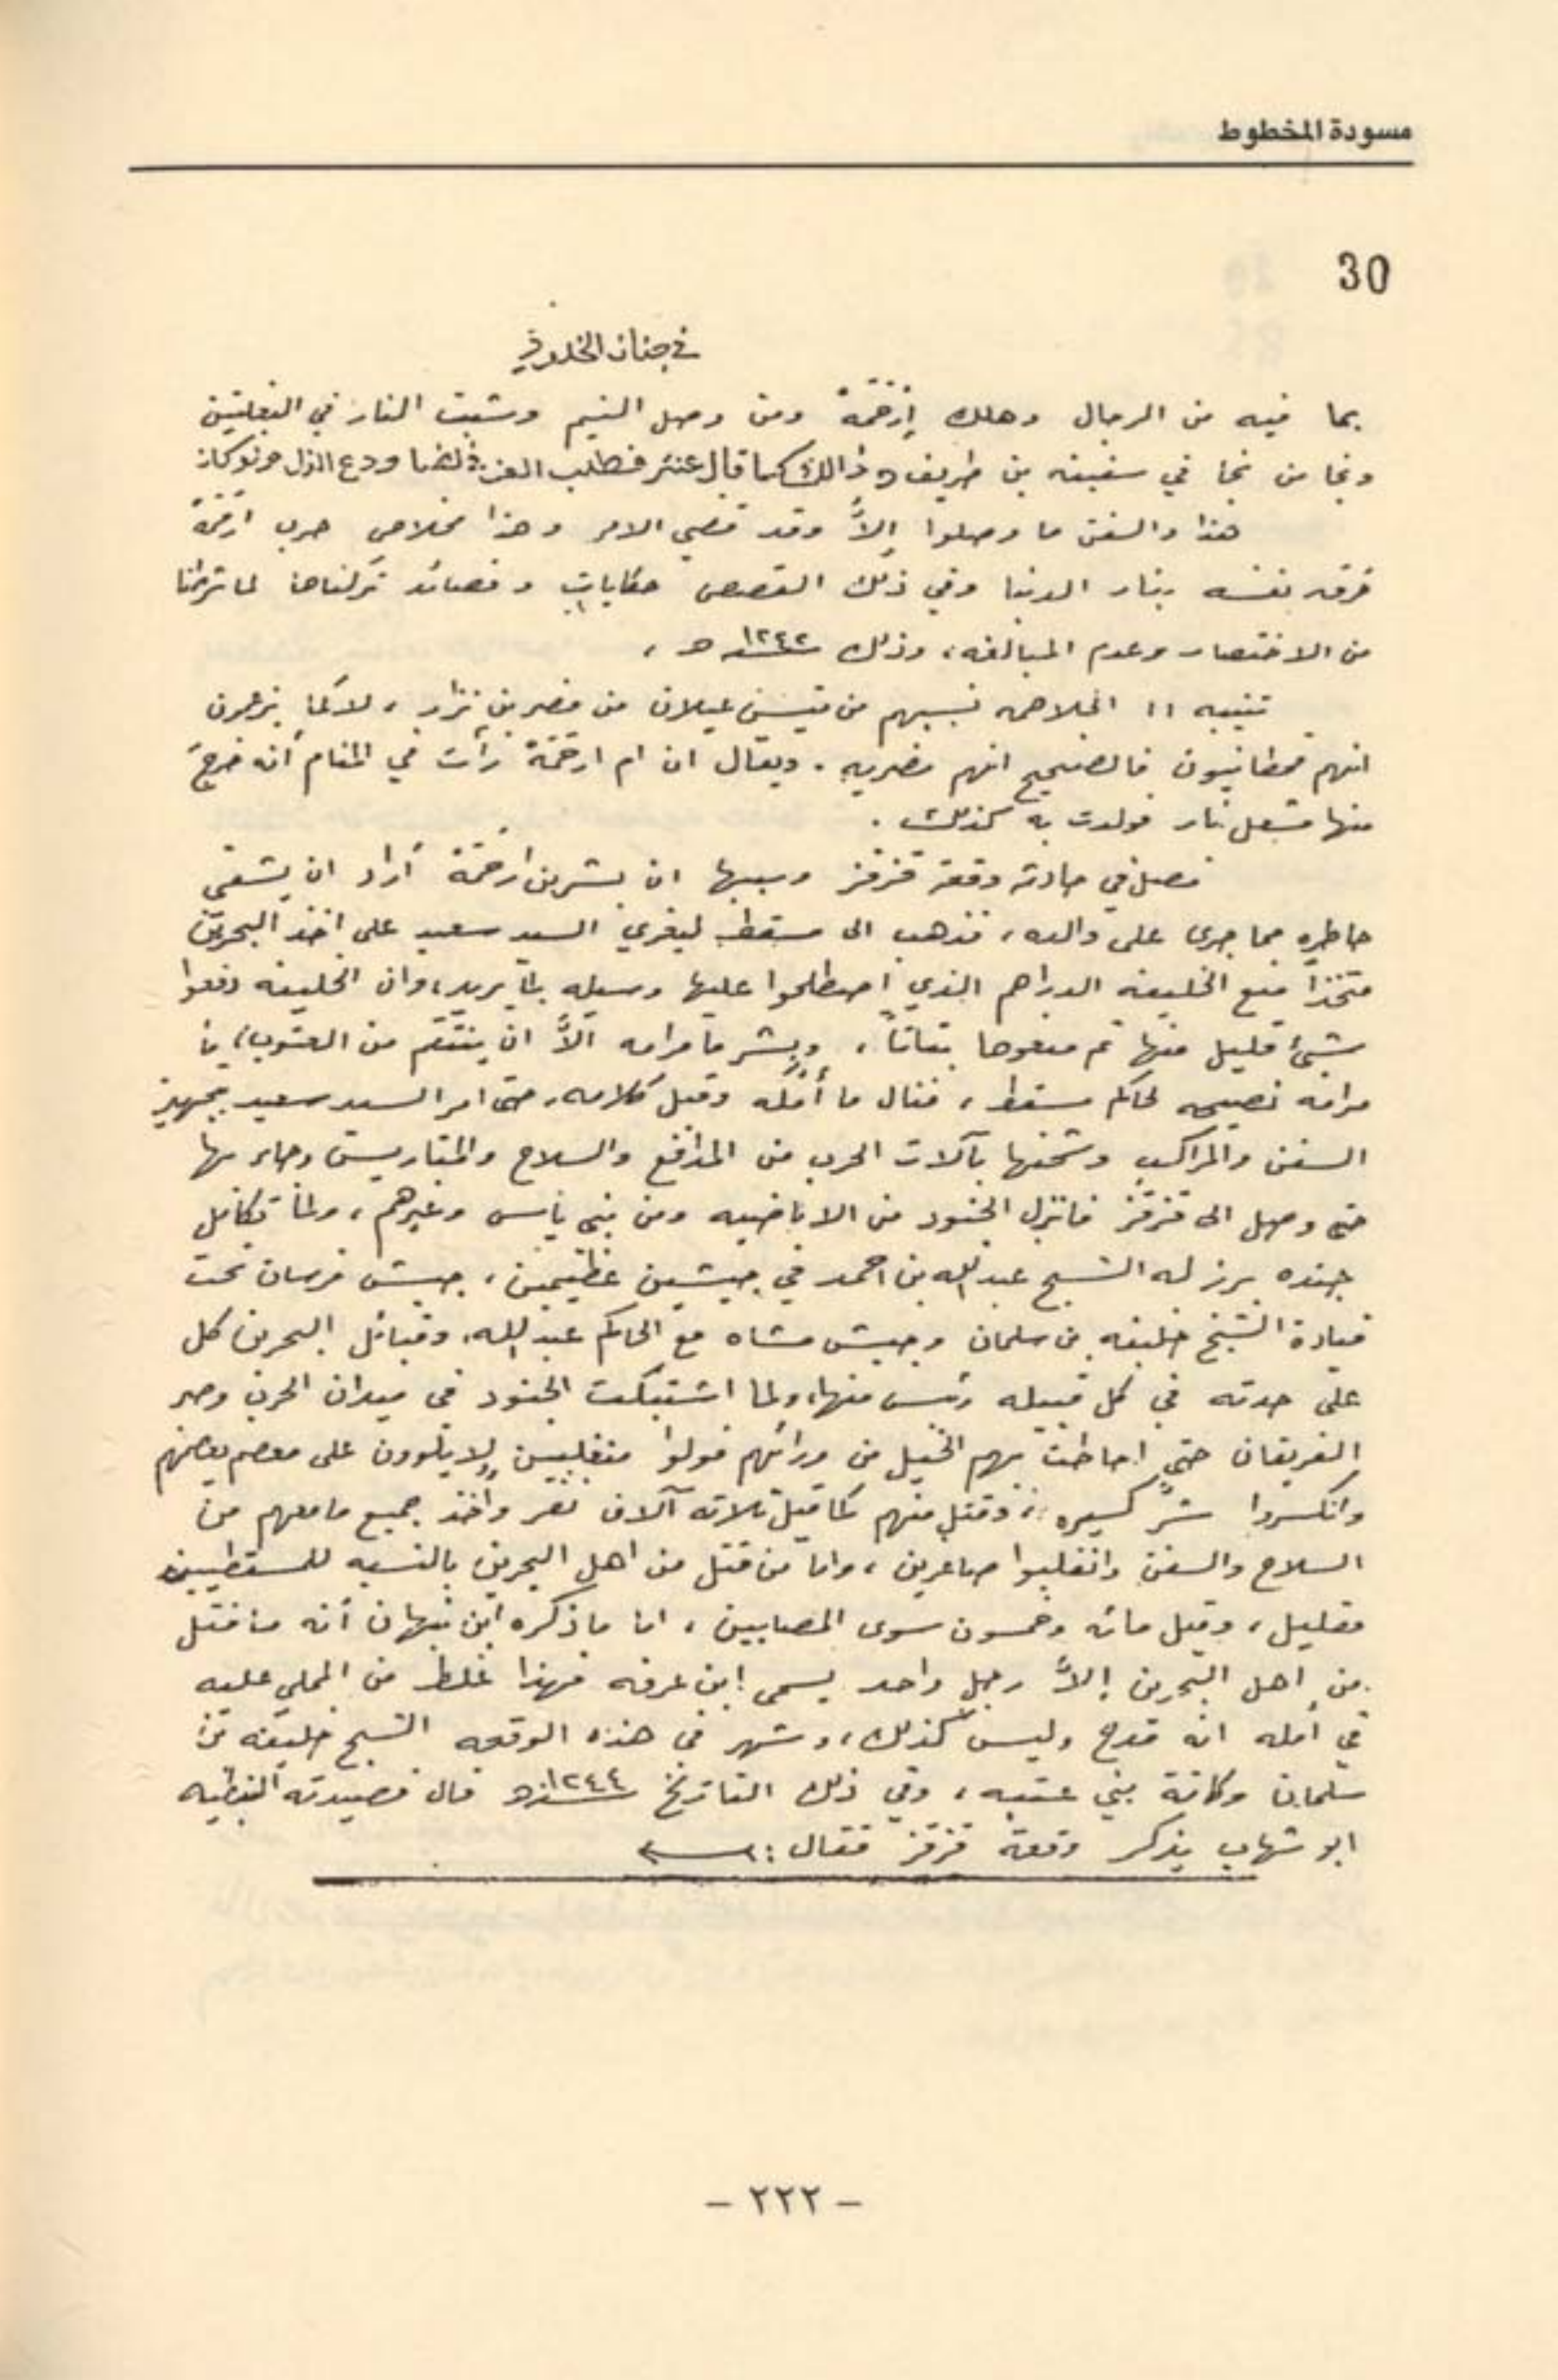 مسودة المخطوط
30
في جنان الخلود
بما فيه من الرجال وهلك إرخمة ومن وصل النيم وشبت النار في البغلتين
ونجا من نجا في سفينة بن طريف وذالك كما قال عنتر فطلب العز في لضا ودع الذل ولو كان
هذا والسفن ما وصلوا إلاَّ وقد قضي الامر وهذا خلاص حرب ارخمة
غرق نفسه بنار الدنيا وفي ذلك القصص حكايات وقصائد تركناها لما شرطنا
من الاختصار وعدم المبالغه، وذلك ١٢٤٢ هـ ،
تنبيه !! الجلاهمه نسبهم من قيس عيلان من مضر بن نزار، لا كما يزعمون
انهم قحطانيون فالصحيح انهم مضريه. ويقال ان ام ارخمة رأت في المنام أنه خرج
منها مشعل نار فولدت به كذلك .
فصل في حادثه وقعة قزقز وسببها ان بشر بن ارخمة أراد ان يشفي
خاطره مما جرى على والده، فذهب الى مسقط ليغري السيد سعيد على اخذ البحرين
متخذاً منع الخليفه الدراهم الذي اصطلحوا عليها وسيله لما يريد، وان الخليفه دفعوا
شيئ قليل منها ثم منعوها بتاتاً، وبشر ما مرامه الاَّ ان ينتقم من العتوب، ما
مرامه نصيحه لحاكم مسقط، فنال ما أمّله وقبل كلامه، حتى امر السيد سعيد بتجهيز
السفن والمراكب وشحنها بآلات الحرب من المدافع والسلاح والمتاريس وصار بها
حتى وصل الى قزقز فانزل الجنود من الاباضيه ومن بني ياس وغيرهم، ولما تكامل
جنده برز له الشيخ عبدالله بن احمد في جيشين عظيمين، جيش فرسان تحت
قيادة الشيخ خليفه بن سلمان وجيش مشاه مع الحاكم عبدالله، وقبائل البحرين كل
على حدته في كل قبيله رئيس منها، ولما اشتبكت الجنود في ميدان الحرب وصبر
الفريقان حتى احاطت بهم الخيل من ورائهم فولوا منقلبين لا يلوون على بعضهم
وانكسروا شرّ كسيره، وقتل منهم كما قيل ثلاثه آلاف نفر واخذ جميع ما معهم من
السلاح والسفن وانقلبوا صاغرين، واما من قتل من اهل البحرين بالنسبه للمسقطيين
فقليل، وقيل مائه وخمسون سوى المصابين، اما ما ذكره ابن نبهان أنه ما قتل
من اهل البحرين إلاَّ رجل واحد يسمى ابن عرفه فهذا غلط من المملي عليه
في أمله انه مدح وليس كذلك، وشهر في هذه الوقعه الشيخ خليفه بن
سلمان وكافة بني عتبه، وفي ذلك التاريخ ١٢٤٤هـ قال قصيدته النبطيه
ابو شهاب يذكر وقعة قزقز فقال :
- ٢٢٢ -